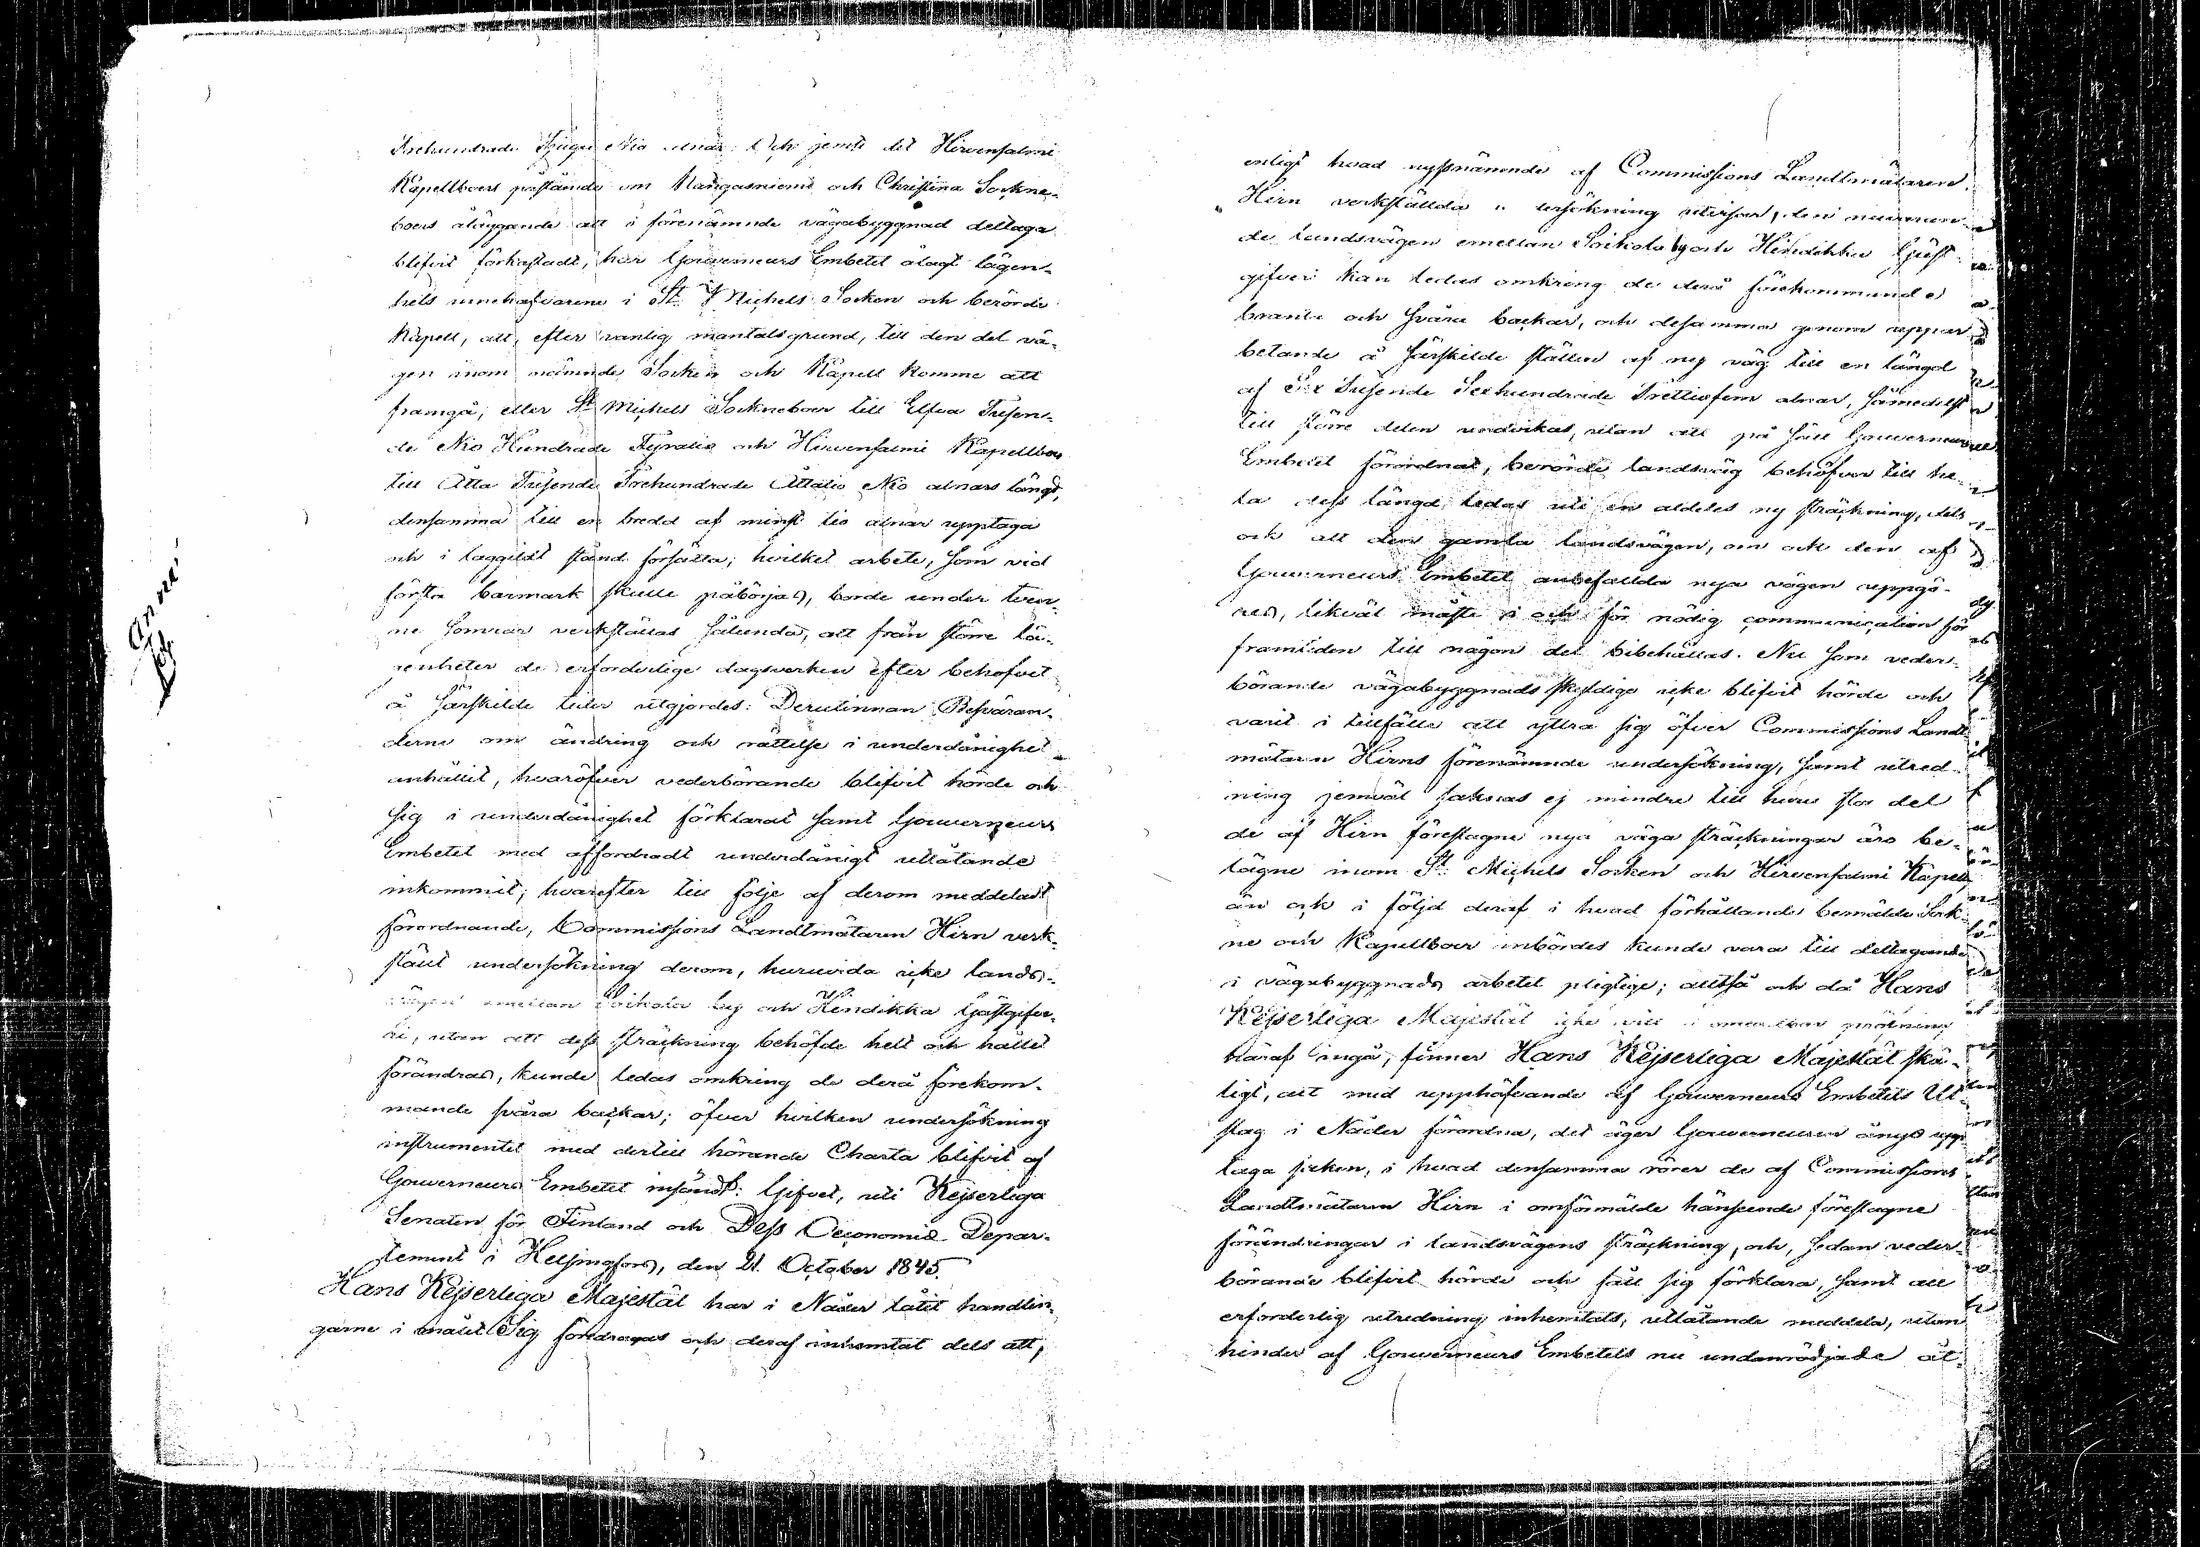 Trehundrade Tjugu Nio alnar. Och jemte det Hirvensalmi
Kapellboers påstående om Kangasniemi och Christina Sockne-
boers åläggande att i förenämnde vägabyggnad deltaga
blifvit förkastadt, har Gouverneurs Embetet ålagt lägen-
hets innehafvarene i St Michels Socken och berörde
Kapell, att, efter vanlig mantalsgrund, till den del vä-
gen inom nämnde Socken och Kapell komme att
framgå, eller St Michels Sockneboer till Elfva Tusen-
de Nio Hundrade Fyratio och Hirvensalmi Kapellboer
till Åtta Tusende Trehundrade Åttatio Nio alnars längd,
densamma till en bredd af minst tio alnar upptaga
och i laggildt stånd försätta; hvilket arbete, som vid
första barmark skulle påbörjas, borde under tvenne
ne somrar verkställas sålunda, att från större lä-
genheter de erforderlige dagsverken efter behofvet
å särskilde tider utgjordes: Derutinnan Besväran-
derne om ändring och rättelse i underdånighet
anhållit, hvaröfver vederbörande blifvit hörde och
sig i underdånighet förklarat samt Gouverneurs
Embetet med affordradt underdånigt utlåtande
inkommit; hvarefter till följe af derom meddeladt
förordnande, Commissions Landtmätaren Hirn verk-
ställt undersökning derom, huruvida icke lands-
vägen emellan Soikola by och Hindikka Gästgifve-
ri, utan att dess sträckning behöfde helt och hållet
förändras, kunde ledas omkring de derå förekom-
mande svåra backar; öfver hvilken undersökning
instrumentet med dertill hörande Charta blifvit af
Gouverneurs Embetet insändt: Gifvet, uti Kejserliga
Senaten för Finland och Dess Oeconomie Depar-
tement i Helsingfors, den 21. October 1845.
Hans Kejserliga Majestät har i Nåder låtit handlin-
garne i målet Sig föredragas och deraf inhemtat dels att,
enligt hvad nyssnämnde af Commissions Landtmätaren
Hirn verkställda undersökning utvisar, den nuvaran-
de landsvägen emellan Soikola by och Hindikka Gäst-
gifveri kan ledas omkring de derå förekommande
branta och svåra backar, och desamma genom uppar-
betande å särskilde ställen af ny väg till en längd
af Sex Tusende Sexhundrade Trettiofem alnar, sämedelst
till större delen undvikas, utan att på sätt Gouverneurs
Embetet förordnat, berörde landsväg behöfver till he-
la dess längd ledas uti en aldeles ny sträckning, dels
ock att den gamla landsvägen, om ock den af
Gouverneurs Embetet anbefallda nya vägen uppgö-
res, likväl måste i och för nödig communication för
framtiden till någon del bibehållas. Nu som veder-
börande vägabyggnads skyldige icke blifvit hörde och
varit i tillfälle att yttra sig öfver Commissions Landt-
mätaren Hirns förenämnde undersökning, samt utred-
ning jemväl saknas ej mindre till huru stor del
de af Hirn föreslagne nya väga sträckningar äro be-
lägne inom St Michels Socken och Hirvensalmi Kapell
än ock i följd deraf i hvad förhållande bemälde Sock-
ne och Kapellboer inbördes kunde vara till deltagande
i vägabyggnads arbetet pligtige; alltså och då Hans
Kejserliga Majestät icke vill i omedelbar pröfning
häraf ingå, finner Hans Kejserliga Majestät skä-
ligt, att med upphäfvande af Gouverneurs Embetets Ut-
slag i Nåder förordna, det äger Gouverneuren ånyo upp-
taga saken, i hvad densamma rörer de af Commissions
Landtmätaren Hirn i omförmälde hänseende föreslagne
förändringar i landsvägens sträckning, och, sedan veder-
börande blifvit hörde och fått sig förklara, samt all
erforderlig utredning inhemtats, utlåtande meddela, utan
hinder af Gouverneurs Embetets nu undanrödjade åt-